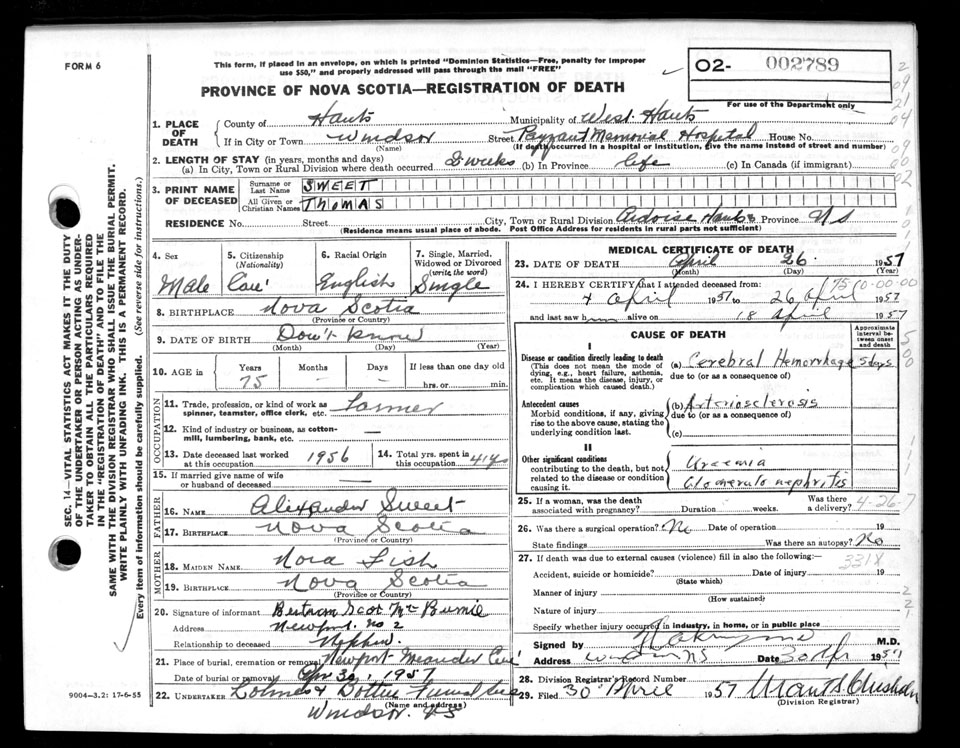 FORM 6
This form, if placed in an envelope, on which is printed "Dominion Statistics—Free, penalty for improper
use $50," and properly addressed will pass through the mail "FREE"
O2- 002789
PROVINCE OF NOVA SCOTIA—REGISTRATION OF DEATH
For use of the Department only
1. PLACE OF DEATH
County of Hants Municipality of West Hants
If in City or Town Windsor Street Payzant Memorial Hospital House No.
(Name) (If death occurred in a hospital or institution, give the name instead of street and number)
2. LENGTH OF STAY (in years, months and days)
(a) In City, Town or Rural Division where death occurred 3 weeks (b) In Province life (c) In Canada (if immigrant)
3. PRINT NAME OF DECEASED
Surname or Last Name SWEET
All Given or Christian Names THOMAS
RESIDENCE No. Street City, Town or Rural Division Ardoise Hants Province NS
(Residence means usual place of abode. Post Office Address for residents in rural parts not sufficient)
4. Sex Male
5. Citizenship (Nationality) Can'
6. Racial Origin English
7. Single, Married, Widowed or Divorced (write the word) Single
8. BIRTHPLACE Nova Scotia
(Province or Country)
9. DATE OF BIRTH Don't know
(Month) (Day) (Year)
10. AGE in Years Months Days If less than one day old
75 — — hrs. or min.
OCCUPATION
11. Trade, profession, or kind of work as spinner, teamster, office clerk, etc. Farmer
12. Kind of industry or business, as cotton-mill, lumbering, bank, etc. —
13. Date deceased last worked at this occupation 1956
14. Total yrs. spent in this occupation 41 ys
15. If married give name of wife or husband of deceased
FATHER
16. NAME Alexander Sweet
17. BIRTHPLACE Nova Scotia
(Province or Country)
MOTHER
18. MAIDEN NAME Nora Fish
19. BIRTHPLACE Nova Scotia
(Province or Country)
20. Signature of informant Bertram Scot
Address Newport No 2
Relationship to deceased Nephew.
21. Place of burial, cremation or removal Newport Meander Cem'
Date of burial or removal Apr 30, 1957
22. UNDERTAKER Funeral
(Name and Address)
Windsor. NS
MEDICAL CERTIFICATE OF DEATH
23. DATE OF DEATH April 26 1957
(Month) (Day) (Year)
24. I HEREBY CERTIFY that I attended deceased from:
4 April 1957 to 26 April 1957
and last saw him alive on 18 April 1957
CAUSE OF DEATH
Approximate interval between onset and death
I
Disease or condition directly leading to death
(This does not mean the mode of dying, e.g., heart failure, asthenia, etc. It means the disease, injury, or complication which caused death.)
(a) Cerebral Hemorrhage 5 days
due to (or as a consequence of)
Antecedent causes
Morbid conditions, if any, giving rise to the above cause, stating the underlying condition last.
(b) Arteriosclerosis
due to (or as a consequence of)
(c)
II
Other significant conditions
contributing to the death, but not related to the disease or condition causing it.
Uraemia
Glomerulo nephritis
25. If a woman, was the death associated with pregnancy? Duration weeks. Was there a delivery?
4-26-7
26. Was there a surgical operation? No Date of operation 19
State findings Was there an autopsy? No
27. If death was due to external causes (violence) fill in also the following:—
331X
Accident, suicide or homicide? Date of injury 19
(State which)
Manner of injury
(How sustained)
Nature of injury
Specify whether injury occurred in industry, in home, or in public place
Signed by M.D.
Address Windsor NS Date 30 Apr 1957
28. Division Registrar's Record Number
29. Filed 30 April 1957
(Division Registrar)
SEC. 14—VITAL STATISTICS ACT MAKES IT THE DUTY
OF THE UNDERTAKER OR PERSON ACTING AS UNDER-
TAKER TO OBTAIN ALL THE PARTICULARS REQUIRED
IN THE "REGISTRATION OF DEATH" AND TO FILE THE
SAME WITH THE DIVISION REGISTRAR WHO SHALL ISSUE THE BURIAL PERMIT.
WRITE PLAINLY WITH UNFADING INK. THIS IS A PERMANENT RECORD.
Every item of information should be carefully supplied. (See reverse side for instructions.)
9004—3.2: 17-6-55